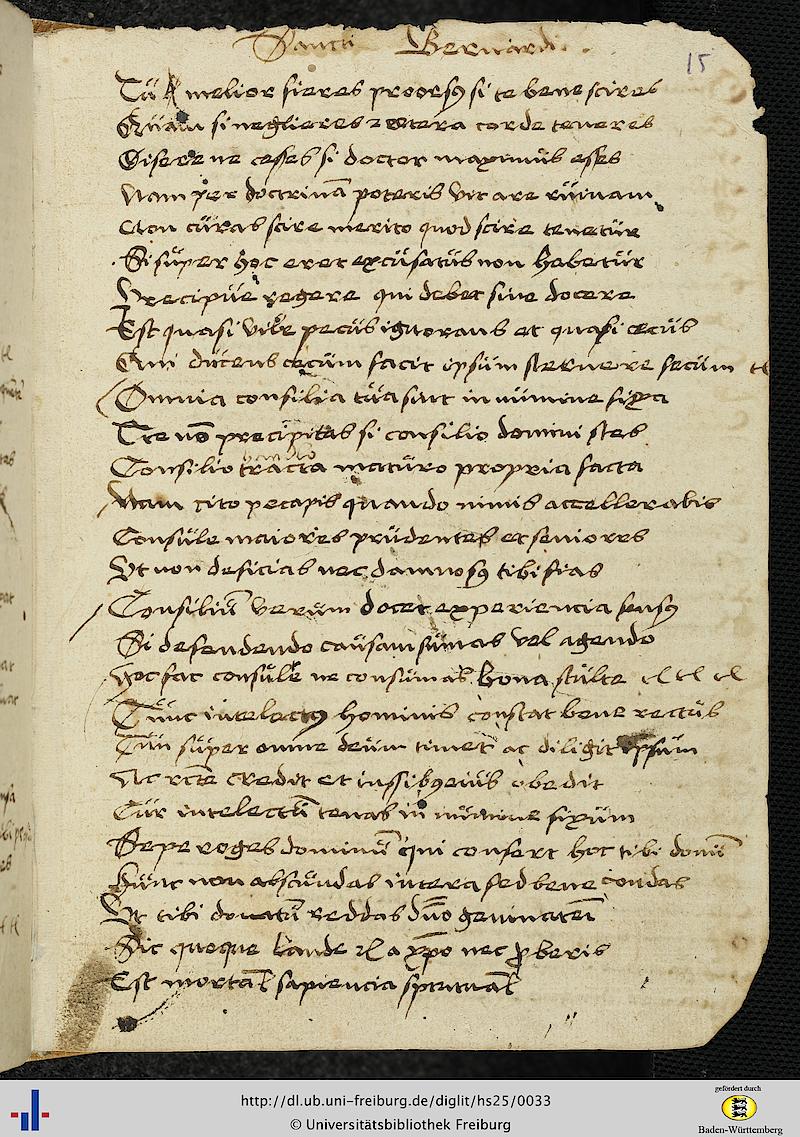 Sancti Bernardi .
15
Tu melior fieres prorsus si te bene scires
Quam si neglieres cetera corde teneres
Discere ne cesses si doctor maximus esses
Nam per doctrinā poteris vitare ruinam
Non curas scire merito quod scire tenetur
Si super hoc eret excusatus non habetur
Precipue regere qui debet sive docere
Est quasi vile pecus ignorans et quasi cecus
Qui ducens cecum facit ipsum sternere secum
Omnia consilia tua sint in numine fixa
Te nō precipitas si consilio domini stes
Consilio tracta maturo propria facta
Nam cito peccabis quando nimis accellerabis
Consule maiores prudentes et seniores
Vt non deficias nec damnosus tibi fias
Consiliū verum docet experiencia sensus
Si defendendo causam sumas vel agendo
Hoc fac consule ne consumas bona stulte
Tunc intelectus hominis constat bene rectus
Cum super omne deum timet ac diligit ipsum
Ac rcte credit et iussibus eius obedit
Cur intelectū teneas in numine fixum
Sepe roges dominū qui confert hoc tibi donū
Hunc non abscundas intera sed bene condas
Vt tibi donatū reddas dño geminatū
Sic quoque laude a xpo nec
Est mortal sapiencia spiritual
http://dl.ub.uni-freiburg.de/diglit/hs25/0033
© Universitätsbibliothek Freiburg
gefördert durch
Baden-Württemberg